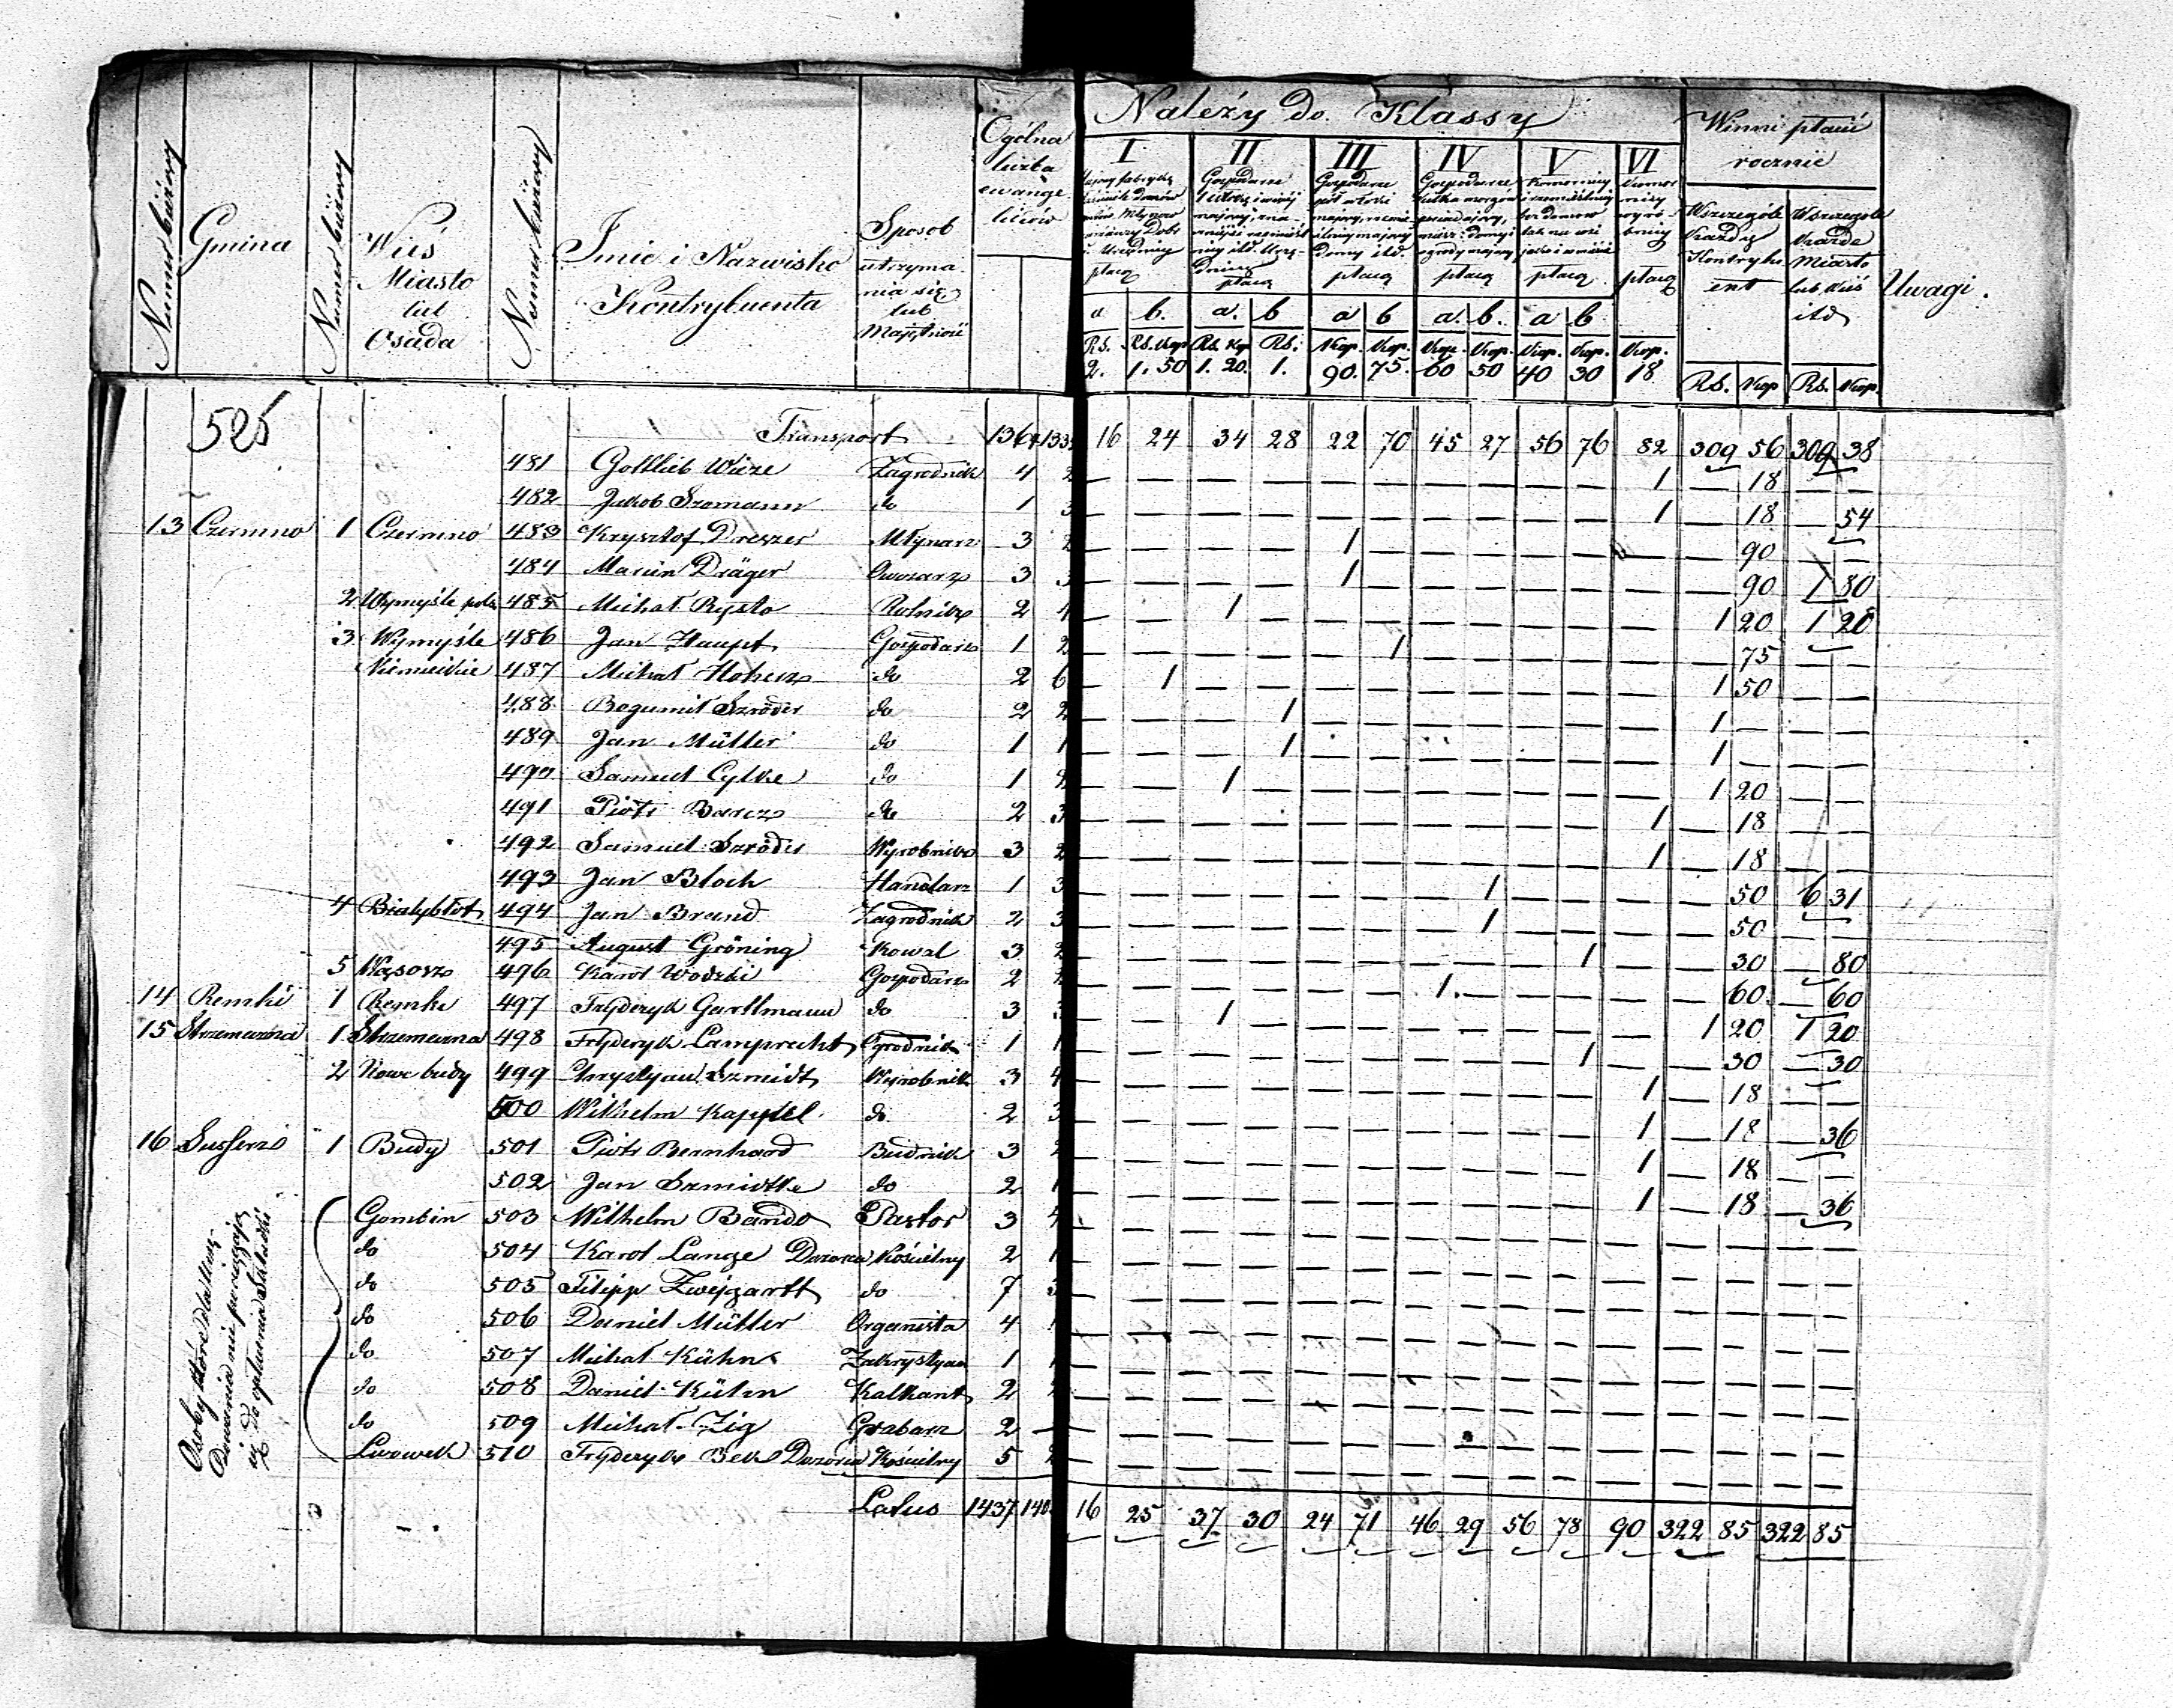 Należy do Klassy
Numer bieżący
Gmina
Numer bieżący
Wieś
Miasto
lub
Osada
Numer bieżący
Imie i Nazwisko
Kontrybuenta
Sposob
utrzyma
nia się
lub
Majętność
Ogólna
liczba
ewange
lików
I
płacą
II
Gospodarze
płacą
III
Gospodarze
płacą
IV
Gospodarze
płacą
V
Komornicy
płacą
VI
płacą
Winni płacić
rocznie
Wszczególe
Każdy
Kontrybu
ent
Wszczególe
Każde
Miasto
lub Wieś
itd
Uwagi.
a b. a. b a b a. b. a b
Rs. Rs. Kop Rs. Kop Rs. Kop. Kop. Kop. Kop. Kop. Kop. Kop. Rs. Kop Rs. Kop.
2. 1. 50 1. 20. 1. 90. 75. 60 50 40 30 18
525
Transport 1364 133 16 24 34 28 22 70 45 27 56 76 82 309 56 309 38
481 Gottlieb Wieze Zagrodnik 4 2 — — — — — — — — — — 1 — 18 — —
482 Jakob Szomann do 1 3 — — — — — — — — — — 1 — 18 — 54
13 Czermno 1 Czermno 483 Krysztof Dreszer Młynarz 3 2 — — — — 1 — — — — — — — 90 — —
484 Marcin Dräger Owocarz 3 3 — — — — 1 — — — — — — — 90 1 80
2 Wymyśle pols 485 Michał Rysto Rolnik 2 4 — — 1 — — — — — — — — 1 20 1 20
3 Wymyśle 486 Jan Haupt Gospodarz 1 2 — — — — — 1 — — — — — — 75 — —
Niemieckie 487 Michał Hohersz do 2 6 — 1 — — — — — — — — — 1 50 — —
488 Bogumił Szröder do 2 2 — — — 1 — — — — — — — 1 — — —
489 Jan Müller do 1 1 — — — 1 — — — — — — — 1 — — —
490 Samuel Cylke do 1 2 — — 1 — — — — — — — — 1 20 — —
491 Piotr Barcz do 2 3 — — — — — — — — — — 1 — 18 — —
492 Samuel Szröder Wyrobnik 3 2 — — — — — — — — — — 1 — 18 — —
493 Jan Bloch Handlarz 1 3 — — — — — — — 1 — — — — 50 6 31
4 Białybłot 494 Jan Brand Zagrodnik 2 3 — — — — — — — 1 — — — — 50 — —
495 August Gröning Kowal 3 2 — — — — — — — — — 1 — — 30 — 80
5 Wąsosz 496 Karol Wodzki Gospodarz 2 2 — — — — — — 1. — — — — — 60 — 60
14 Remki 1 Remki 497 Fryderyk Gartlmann do 3 3 — — 1 — — — — — — — — 1 20 1 20
15 Strzemeszna 1 Strzemeszna 498 Fryderyk Lamprecht Ogrodnik 1 1 — — — — — — — — — 1 — — 30 — 30
2 Nowe budy 499 Chrystyan Szmidt Wyrobnik 3 4 — — — — — — — — — — 1 — 18 — —
500 Wilhelm Kappel do 2 3 — — — — — — — — — — 1 — 18 — 36
16 Susserz 1 Budy 501 Piotr Bernhard Budnik 3 2 — — — — — — — — — — 1 — 18 — —
502 Jan Szmidtke do 2 1 — — — — — — — — — — 1 — 18 — 36
Osoby które dla
nie pociągają
się do opłacenia Składki
Gombin 503 Wilhelm Bando Pastor 3 4 — — — — — — — — — — — — — — —
do 504 Karol Lange Dozorca Kościelny 2 1 — — — — — — — — — — — — — — —
do 505 Filipp Zwejgartt do 7 3 — — — — — — — — — — — — — — —
do 506 Daniel Müller Organista 4 1 — — — — — — — — — — — — — — —
do 507 Michał Kühn Zakrystyan 1 1 — — — — — — — — — — — — — — —
do 508 Daniel Kühn Kalkant 2 2 — — — — — — — — — — — — — — —
do 509 Michał Zig Grabarz 2 — — — — — — — — — — — — — — — —
Lwowek 510 Fryderyk Bek Dozorca Kościelny 5 2 — — — — — — — — — — — — — — —
Latus 1437 140 16 25 37 30 24 71 46 29 56 78 90 322 85 322 85